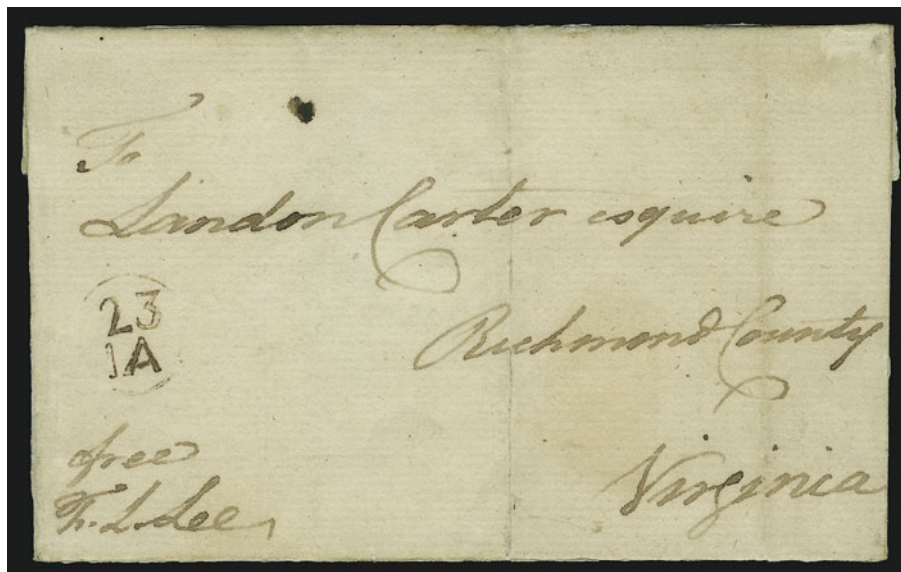 To
Landon Carter esquire
Richmond County
Virginia
23
IA
free
F. L. Lee